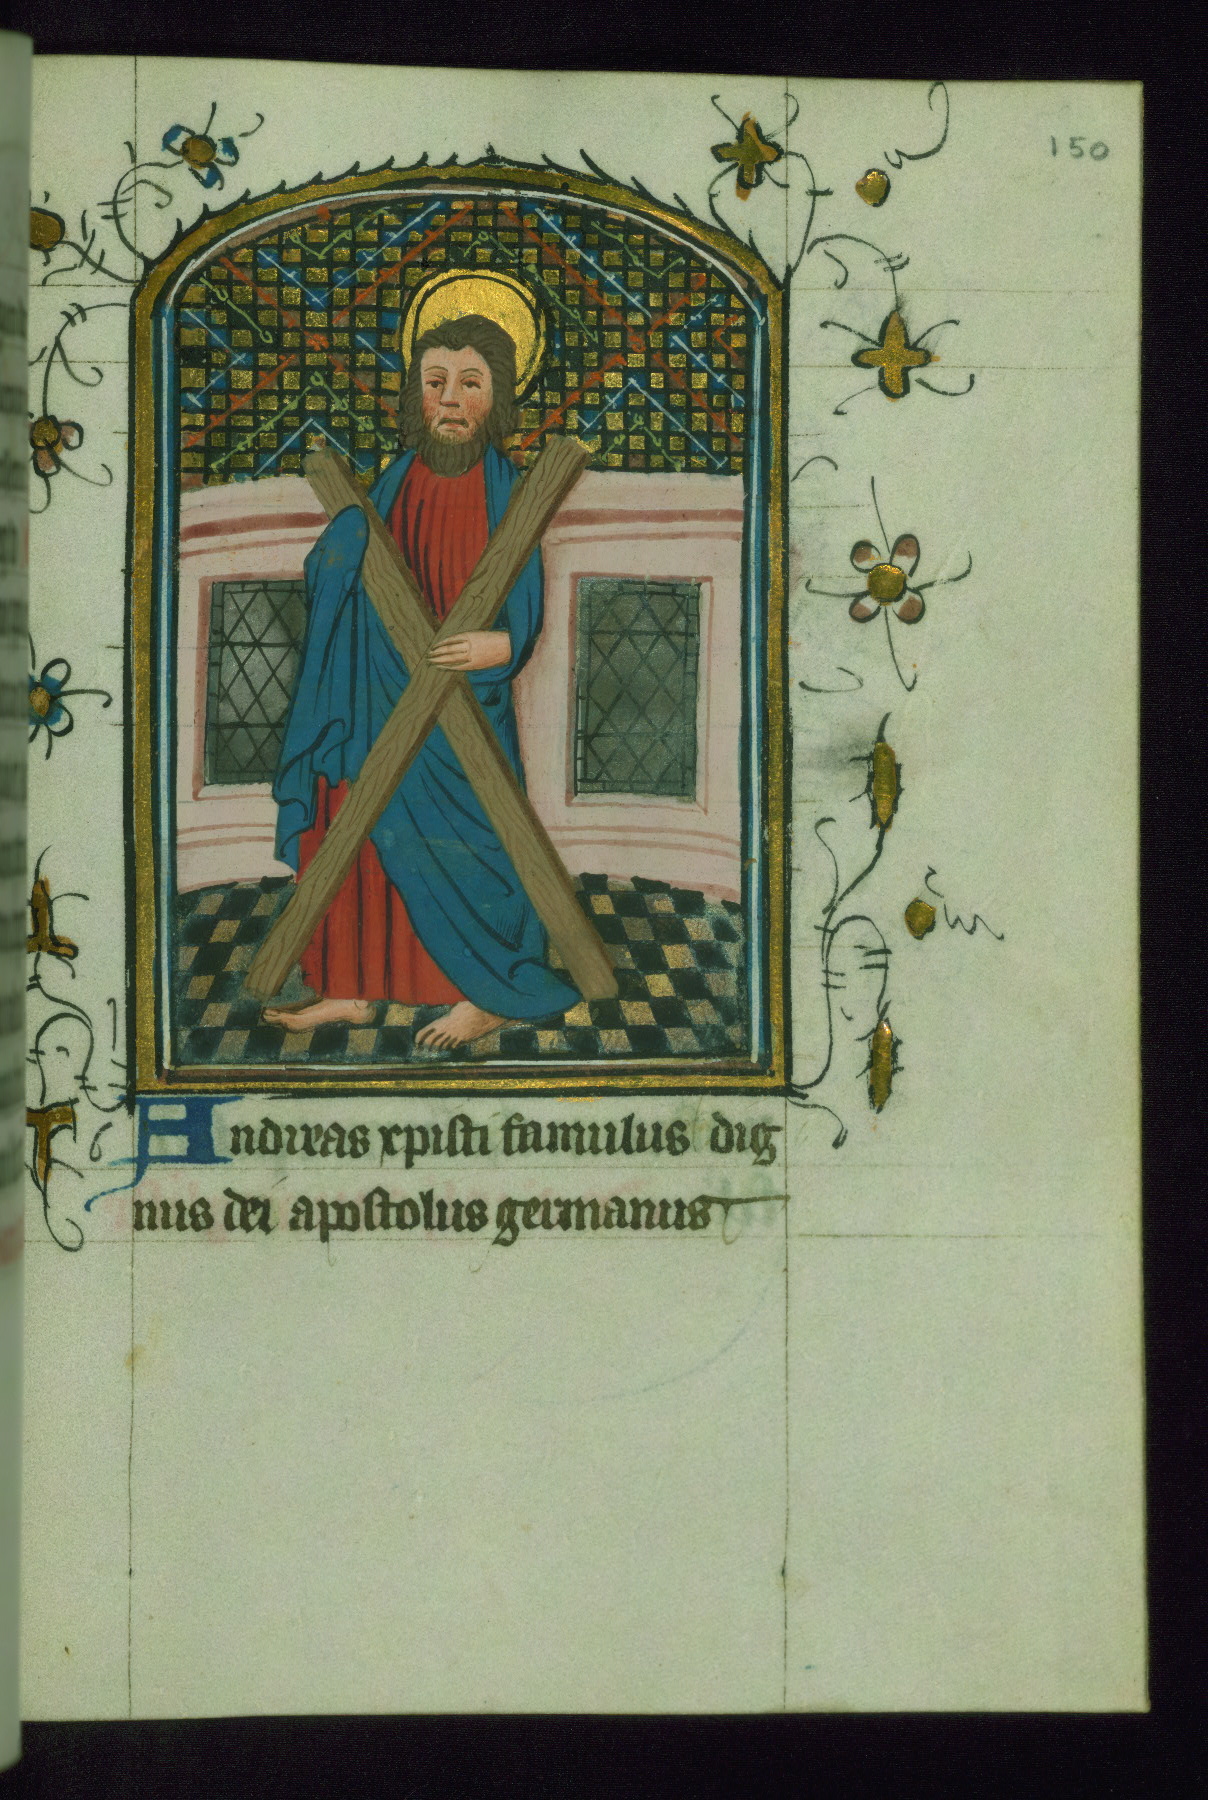 150
Andreas xpisti famulus dig
nus dei apostolus germanus